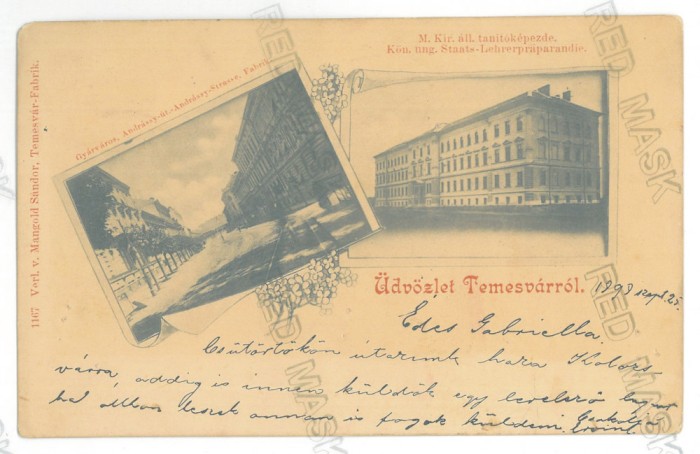 M. Kir. áll. tanitóképezde.
Kön. ung. Staats-Lehrerpräparandie.
Gyárváros, Andrássy-út.-Andrássy-Strasse, Fabrik.
1167 Verl. v. Mangold Sándor, Temesvár-Fabrik.
Üdvözlet Temesvárról.
1898 szept. 25.
Édes Gabriella
Csütörtökön utazunk haza Kolozs-
várra, addig is innen küldök egy
hol leszek onnan is fogok küldeni
RED MASK